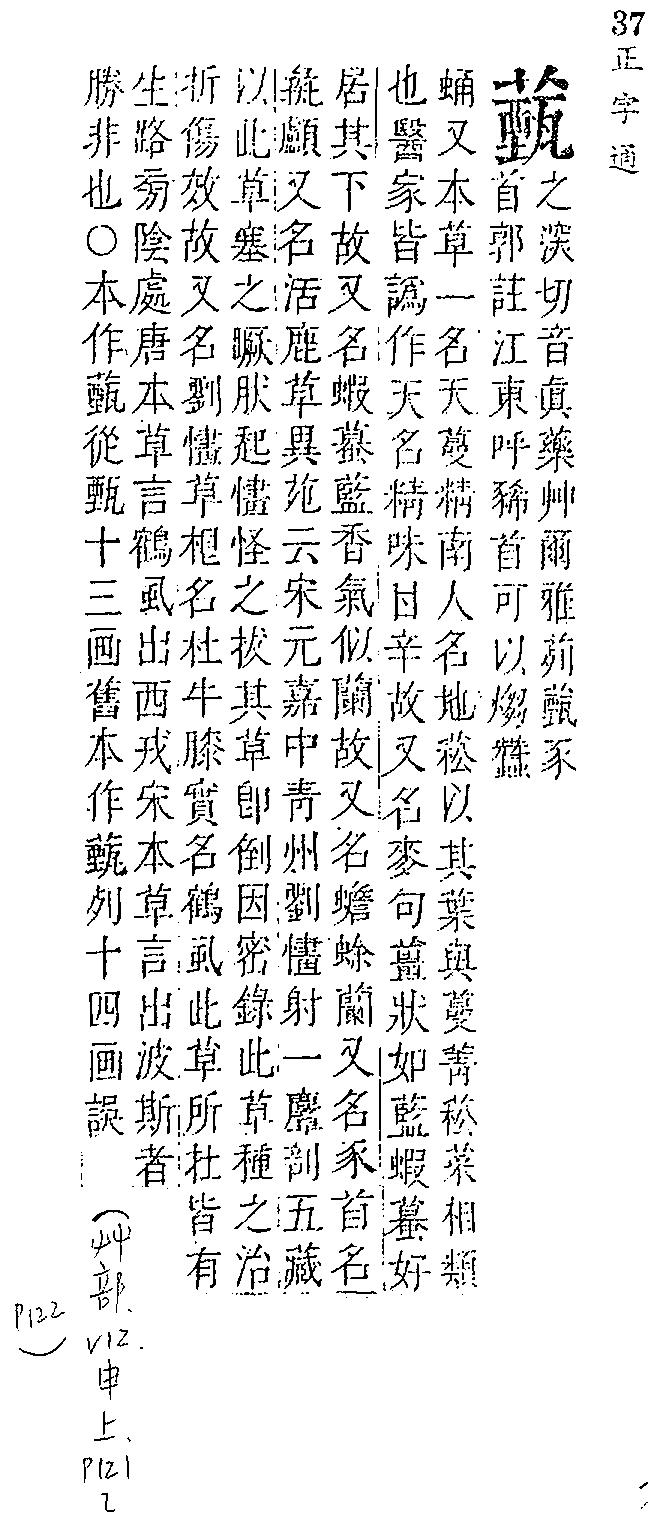 37
正字通
薽
之深切音眞藥艸爾雅茢薽豕
首郭註江東呼豨首可以煼蠶
蛹又本草一名天蔓精南人名地菘以其葉與蔓菁菘菜相類
也醫家皆譌作天名精味甘辛故又名麥句薑狀如藍蝦蟇好
居其下故又名蝦蟇藍香氣似蘭故又名蟾蜍蘭又名豕首名
彘顱又名活鹿草異苑云宋元嘉中靑州劉㦎射一麞剖五藏
以此草塞之蹶然起㦎怪之拔其草卽倒因密錄此草種之治
折傷效故又名劉㦎草根名杜牛膝實名鶴虱此草所在皆有
生路旁陰處唐本草言鶴虱出西戎宋本草言出波斯者
勝非也○本作薽從甄十三画舊本作薽列十四画誤
(艸部.
V12.
申
上.
P121
2
P122
)